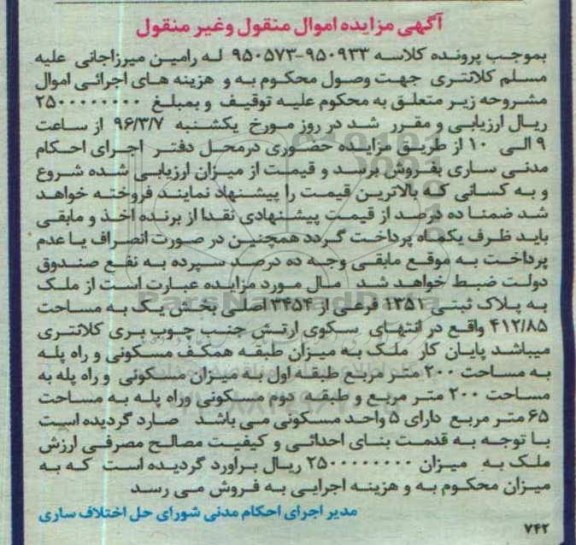 آگهی مزایده اموال منقول وغیر منقول
بموجب پرونده کلاسه ۹۵۰۹۳۳-۹۵۰۵۷۳ له رامین میرزاجانی علیه
مسلم کلانتری جهت وصول محکوم به و هزینه های اجرائی اموال
مشروحه زیر متعلق به محکوم علیه توقیف و بمبلغ ۲۵۰۰۰۰۰۰۰۰
ریال ارزیابی و مقرر شد در روز مورخ یکشنبه ۹۶/۳/۷ از ساعت
۹ الی ۱۰ از طریق مزایده حضوری درمحل دفتر اجرای احکام
مدنی ساری بفروش برسد و قیمت از میزان ارزیابی شده شروع
و به کسانی که بالاترین قیمت را پیشنهاد نمایند فروخته خواهد
شد ضمنا ده درصد از قیمت پیشنهادی نقدا از برنده اخذ و مابقی
باید ظرف یکماه پرداخت گردد همچنین در صورت انصراف یا عدم
پرداخت به موقع مابقی وجه ده درصد سپرده به نفع صندوق
دولت ضبط خواهد شد مال مورد مزایده عبارت است از ملک
به پلاک ثبتی ۱۳۵۱ فرعی از ۳۴۵۴ اصلی بخش یک به مساحت
۴۱۲/۸۵ واقع در انتهای سکوی ارتش جنب چوب بری کلانتری
میباشد پایان کار ملک به میزان طبقه همکف مسکونی و راه پله
به مساحت ۲۰۰ متر مربع طبقه اول به میزان مسکونی و راه پله به
مساحت ۲۰۰ متر مربع و طبقه دوم مسکونی وراه پله به مساحت
۶۵ متر مربع دارای ۵ واحد مسکونی می باشد صارد گردیده است
با توجه به قدمت بنای احداثی و کیفیت مصالح مصرفی ارزش
ملک به میزان ۲۵۰۰۰۰۰۰۰۰ ریال براورد گردیده است که به
میزان محکوم به و هزینه اجرایی به فروش می رسد
مدیر اجرای احکام مدنی شورای حل اختلاف ساری
۷۴۲